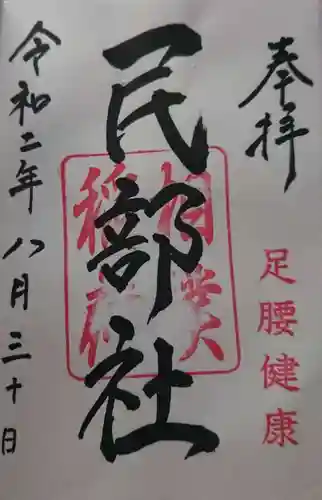 奉拝
足腰健康
民部社
令和二年八月三十日